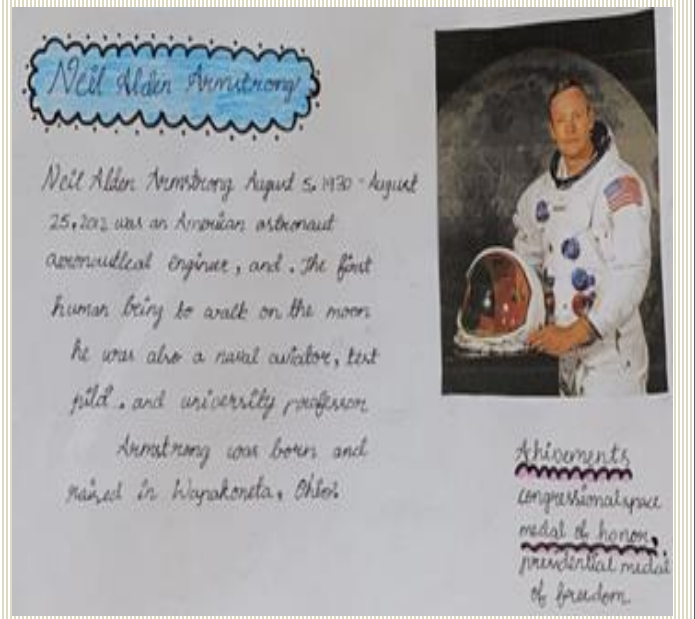 Neil Alden Armstrong
Neil Alden Armstrong August 5, 1930 - August
25, 2012 was an American astronaut
aeronautical engineer, and . The first
human being to walk on the moon
he was also a naval aviator, test
pilot . and university professor
Armstrong was born and
raised in Wapakoneta, Ohio.
Ahivements
congressional space
medal of honor,
presidential medal
of freedom